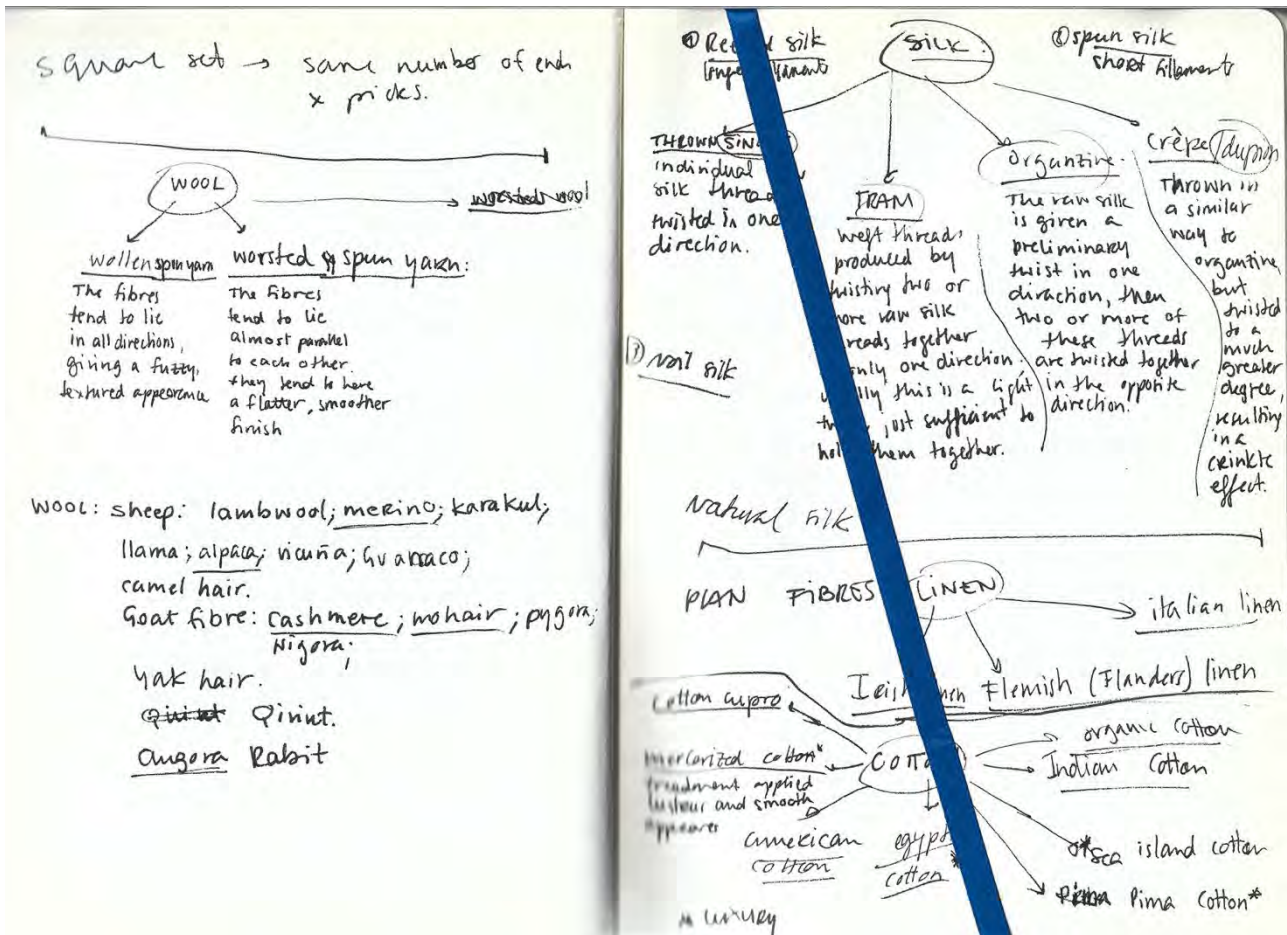 square set → same number of ends
x picks.
WOOL
worsted wool
wollen spun yarn
The fibres
tend to lie
in all directions,
giving a fuzzy,
textured appearance
worsted spun yarn:
The fibres
tend to lie
almost parallel
to each other.
they tend to have
a flatter, smoother
finish
WOOL: sheep: lambwool; merino; karakul;
llama; alpaca; vicuña; Guanaco;
camel hair.
Goat fibre: cashmere; mohair; pygora;
Nigora;
yak hair.
Qiviut Qiviut.
angora Rabit
① silk
SILK.
② spun silk
short filament
THROWN
individual
silk
twisted in one
direction.
TRAM
weft threads
produced by
twisting two or
raw silk
together
only one direction.
this is a light
just sufficient to
them together.
Organzine.
The raw silk
is given a
preliminary
twist in one
diraction, then
two or more of
these threads
are twisted together
in the opposite
direction.
crêpe/dupion
Thrown in
a similar
way to
organzine
but
twisted
to a
much
greater
degree,
resulting
in a
crinkle
effect.
③ noil silk
Natural silk
PLAN FIBRES LINEN
italian linen
Flemish (Flanders) linen
cotton cupro
mercerized cotton*
treadment applied
lusteur and smooth
american
cotton
cotton
organic cotton
Indian cotton
sea island cotton
Pima Pima cotton*
luxury